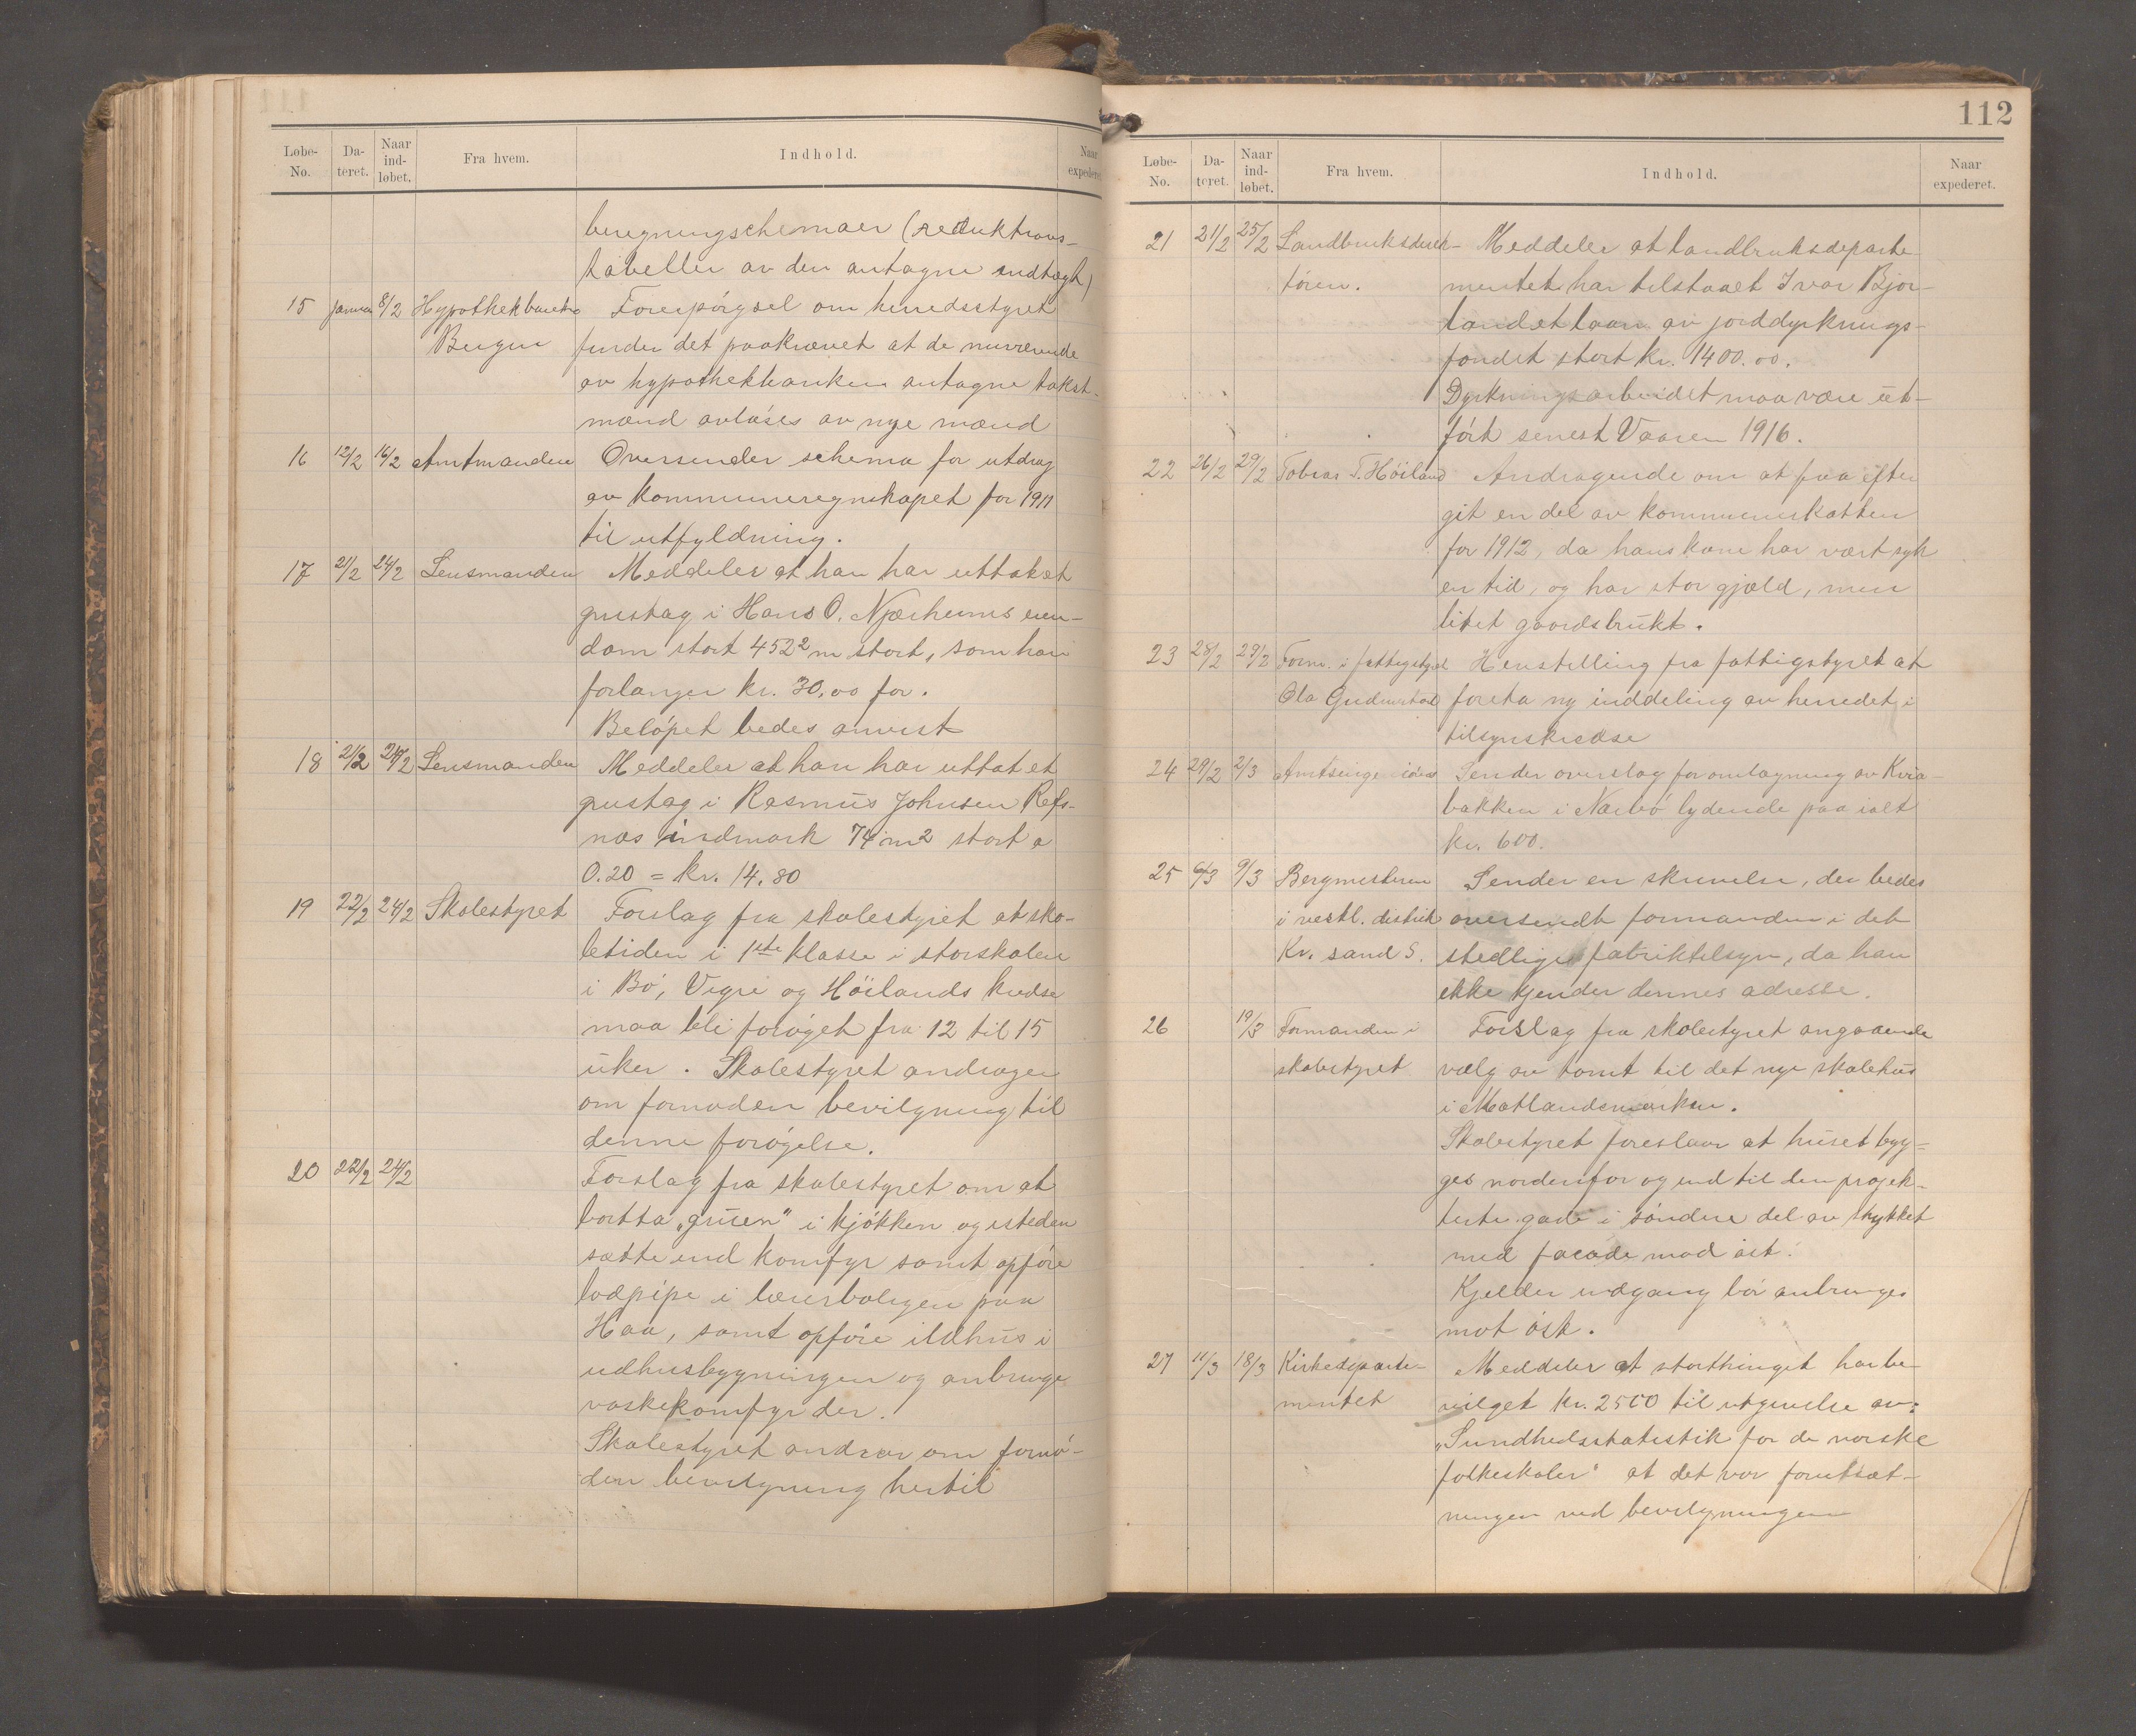 Løbe-No. Da-teret. Naar ind-løbet. Fra hvem. Indhold. Naar expederet.
beregningschemaer (reduktions-
tabeller av den antagne indtægt)
15 januar 8/2 Hypothekbanken Forespørgsel om herredsstyret
Bergen finder det paakrævet at de nuværende
av hypothekbanken antagne takst-
mænd avløses av nye mænd
16 12/2 16/2 Amtmanden Oversender schema for utdrag
av kommuneregnskapet for 1911
til utfyldning.
17 21/2 24/2 Lensmanden Meddeler at han har uttat et
grustag i Hans O. Njærheims eien-
dom stort 452 ²m stort, som han
forlanger kr. 30,00 for.
Beløpet bedes anvist
18 21/2 24/2 Lensmanden Meddeler at han har uttat et
grustag i Rasmus Johnsen Refs-
næs indmark 74 m2 stort a
0.20 = kr. 14.80
19 22/2 24/2 Skolestyret Forslag fra skolestyret at sko-
letiden i 1ste klasse i storskolen
i Bø, Vigre og Høilands kredse
maa bli forøget fra 12 til 15
uker. Skolestyret andrager
om fornøden bevilgning til
denne forøgelse.
20 22/2 24/2 Forslag fra skolestyret om at
bortta „gruen" i kjøkken og isteden
sætte ind komfyr samt opføre
lodpipe i lærerboligen paa
Haa, samt opføre ildhus i
udhusbygningen og anbringe
vaskekomfyr der.
Skolestyret andrar om fornø-
den bevilgning hertil
112
Løbe-No. Da-teret. Naar ind-løbet. Fra hvem. Indhold. Naar expederet.
21 21/2 25/2 Landbruksdirek- Meddeler at landbruksdeparte
tøren. mentet har tilstaaet Ivar Bjor-
land et laan av jorddyrknings-
fondet stort kr. 1400.00.
Dyrkningsarbeidet maa være ut-
ført senest Vaaren 1916.
22 26/2 29/2 Tobias T. Høiland Andragende om at faa efter
git en del av kommuneskatten
for 1912, da hans kone har vært syk
en tid, og har stor gjæld, men
litet gaardsbrukt.
23 28/2 29/2 Form. i fattigstyret Henstilling fra fattigstyret at
Ola Gudmestad foreta ny inddeling av herredet i
tilsynskredse
24 29/2 2/3 Amtsingeniøren Sender overslag for omlægning av Kvia-
bakken i Nærbø lydende paa ialt
kr. 600.
25 6/3 9/3 Bergmesteren Sender en skrivelse, der bedes
i vestl. distrikt oversendt formanden i det
Kr. sand S. stedlige fabriktilsyn, da han
ikke kjender dennes adresse.
26 19/3 Formanden i Forslag fra skolestyret angaaende
skolestyret valg av tomt til det nye skolehus
i Motlandsmarken.
Skolestyret foreslaar at huset byg-
ges nordenfor og ind til den projek-
terte gade i søndre del av stykket
med facade mod øst.
Kjelder indgang bør anbringes
mot øst.
27 11/3 18/3 Kirkedeparte- Meddeler at storthinget har be-
mentet vilget kr. 2500 til utgivelse av:
„Sundhedsstatistik for de norske
folkeskoler" at det var forutsæt-
ningen ved bevilgningen